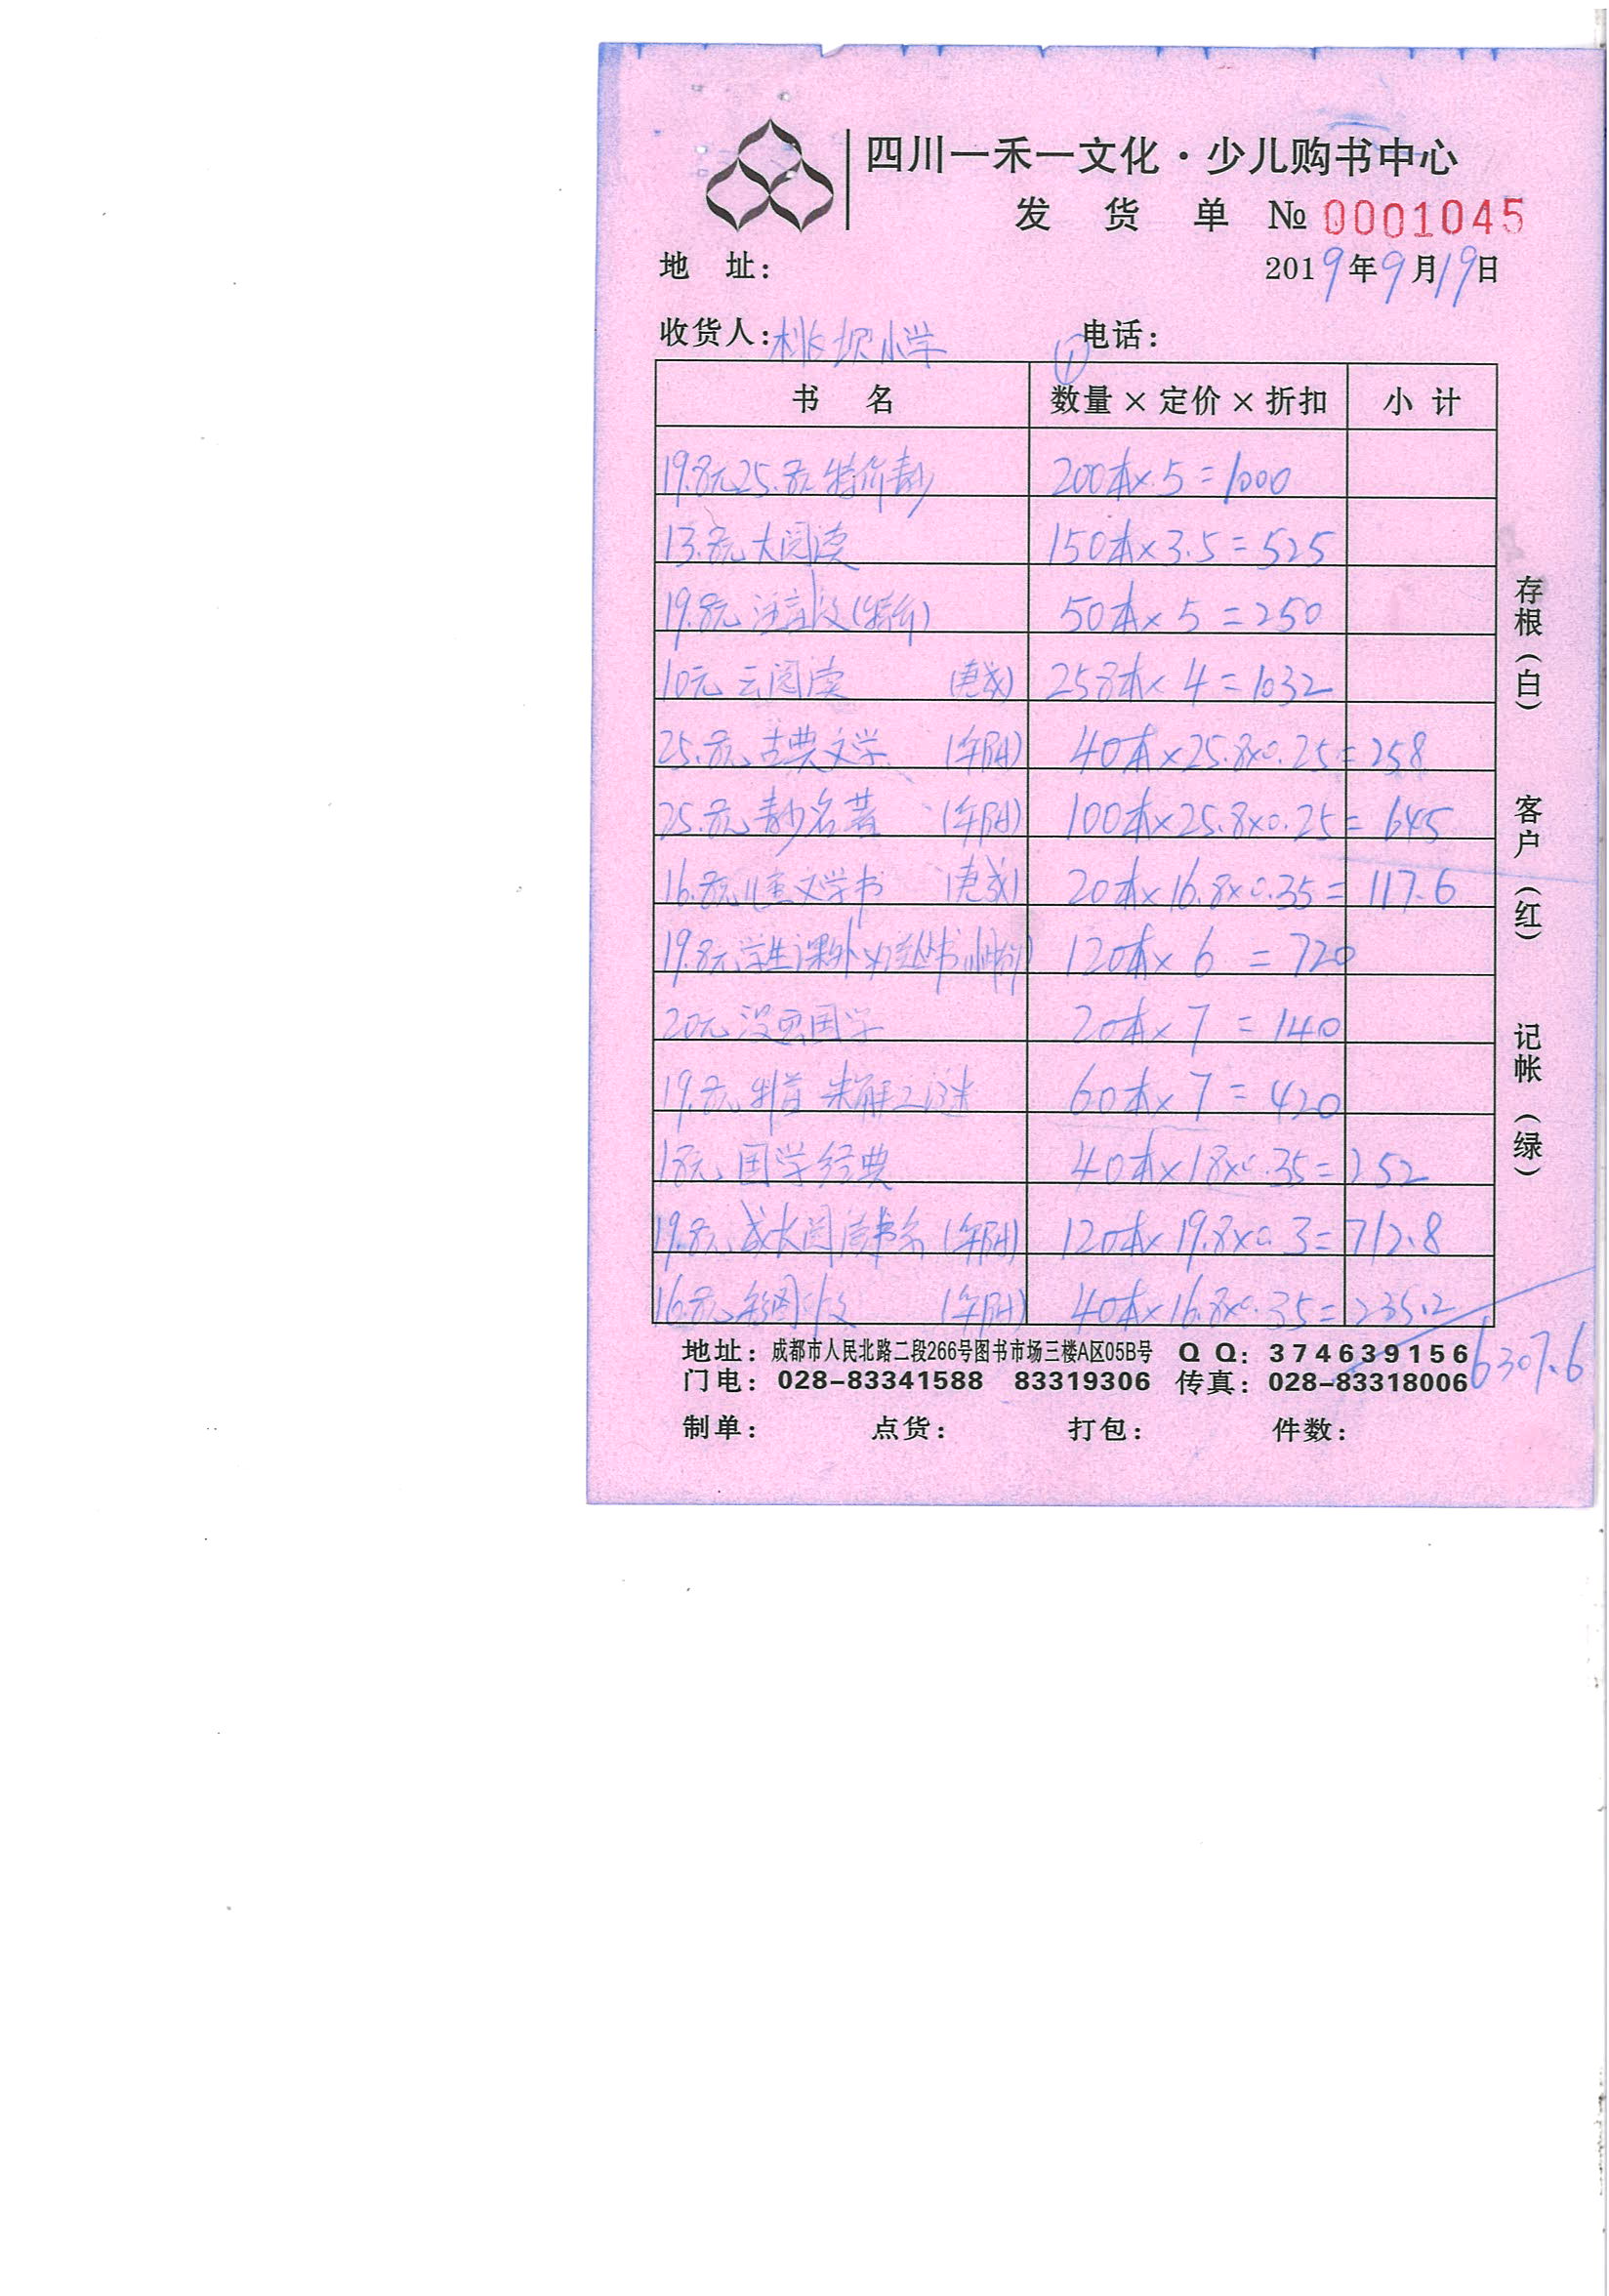 四川一禾一文化·少儿购书中心
发货单 № 0001045
地 址：
2019年9月19日
收货人：桃坝小学 电话：
①
书 名 数量×定价×折扣 小 计
19.8元25.8元特价青少 200本×5=1000
13.8元大阅读 150本×3.5=525
19.8元注音版(特价) 50本×5=250
10元云阅读 258本×4=1032
25.8元古典文学 40本×25.8×0.25=258
25.8元青少名著 100本×25.8×0.25=645
16.8元儿童文学书 20本×16.8×0.35=117.6
19.8元学生课外必读丛书 120本×6=720
20元 国学 20本×7=140
19.8元 未解之谜 60本×7=420
18元国学经典 40本×18×0.35=252
19.8元成长阅读书系 120本×19.8×0.3=712.8
16.8元彩图 40本×16.8×0.35=235.2
6307.6
存根（白） 客户（红） 记帐（绿）
地址：成都市人民北路二段266号图书市场三楼A区05B号 QQ：374639156
门电：028-83341588 83319306 传真：028-83318006
制单： 点货： 打包： 件数：